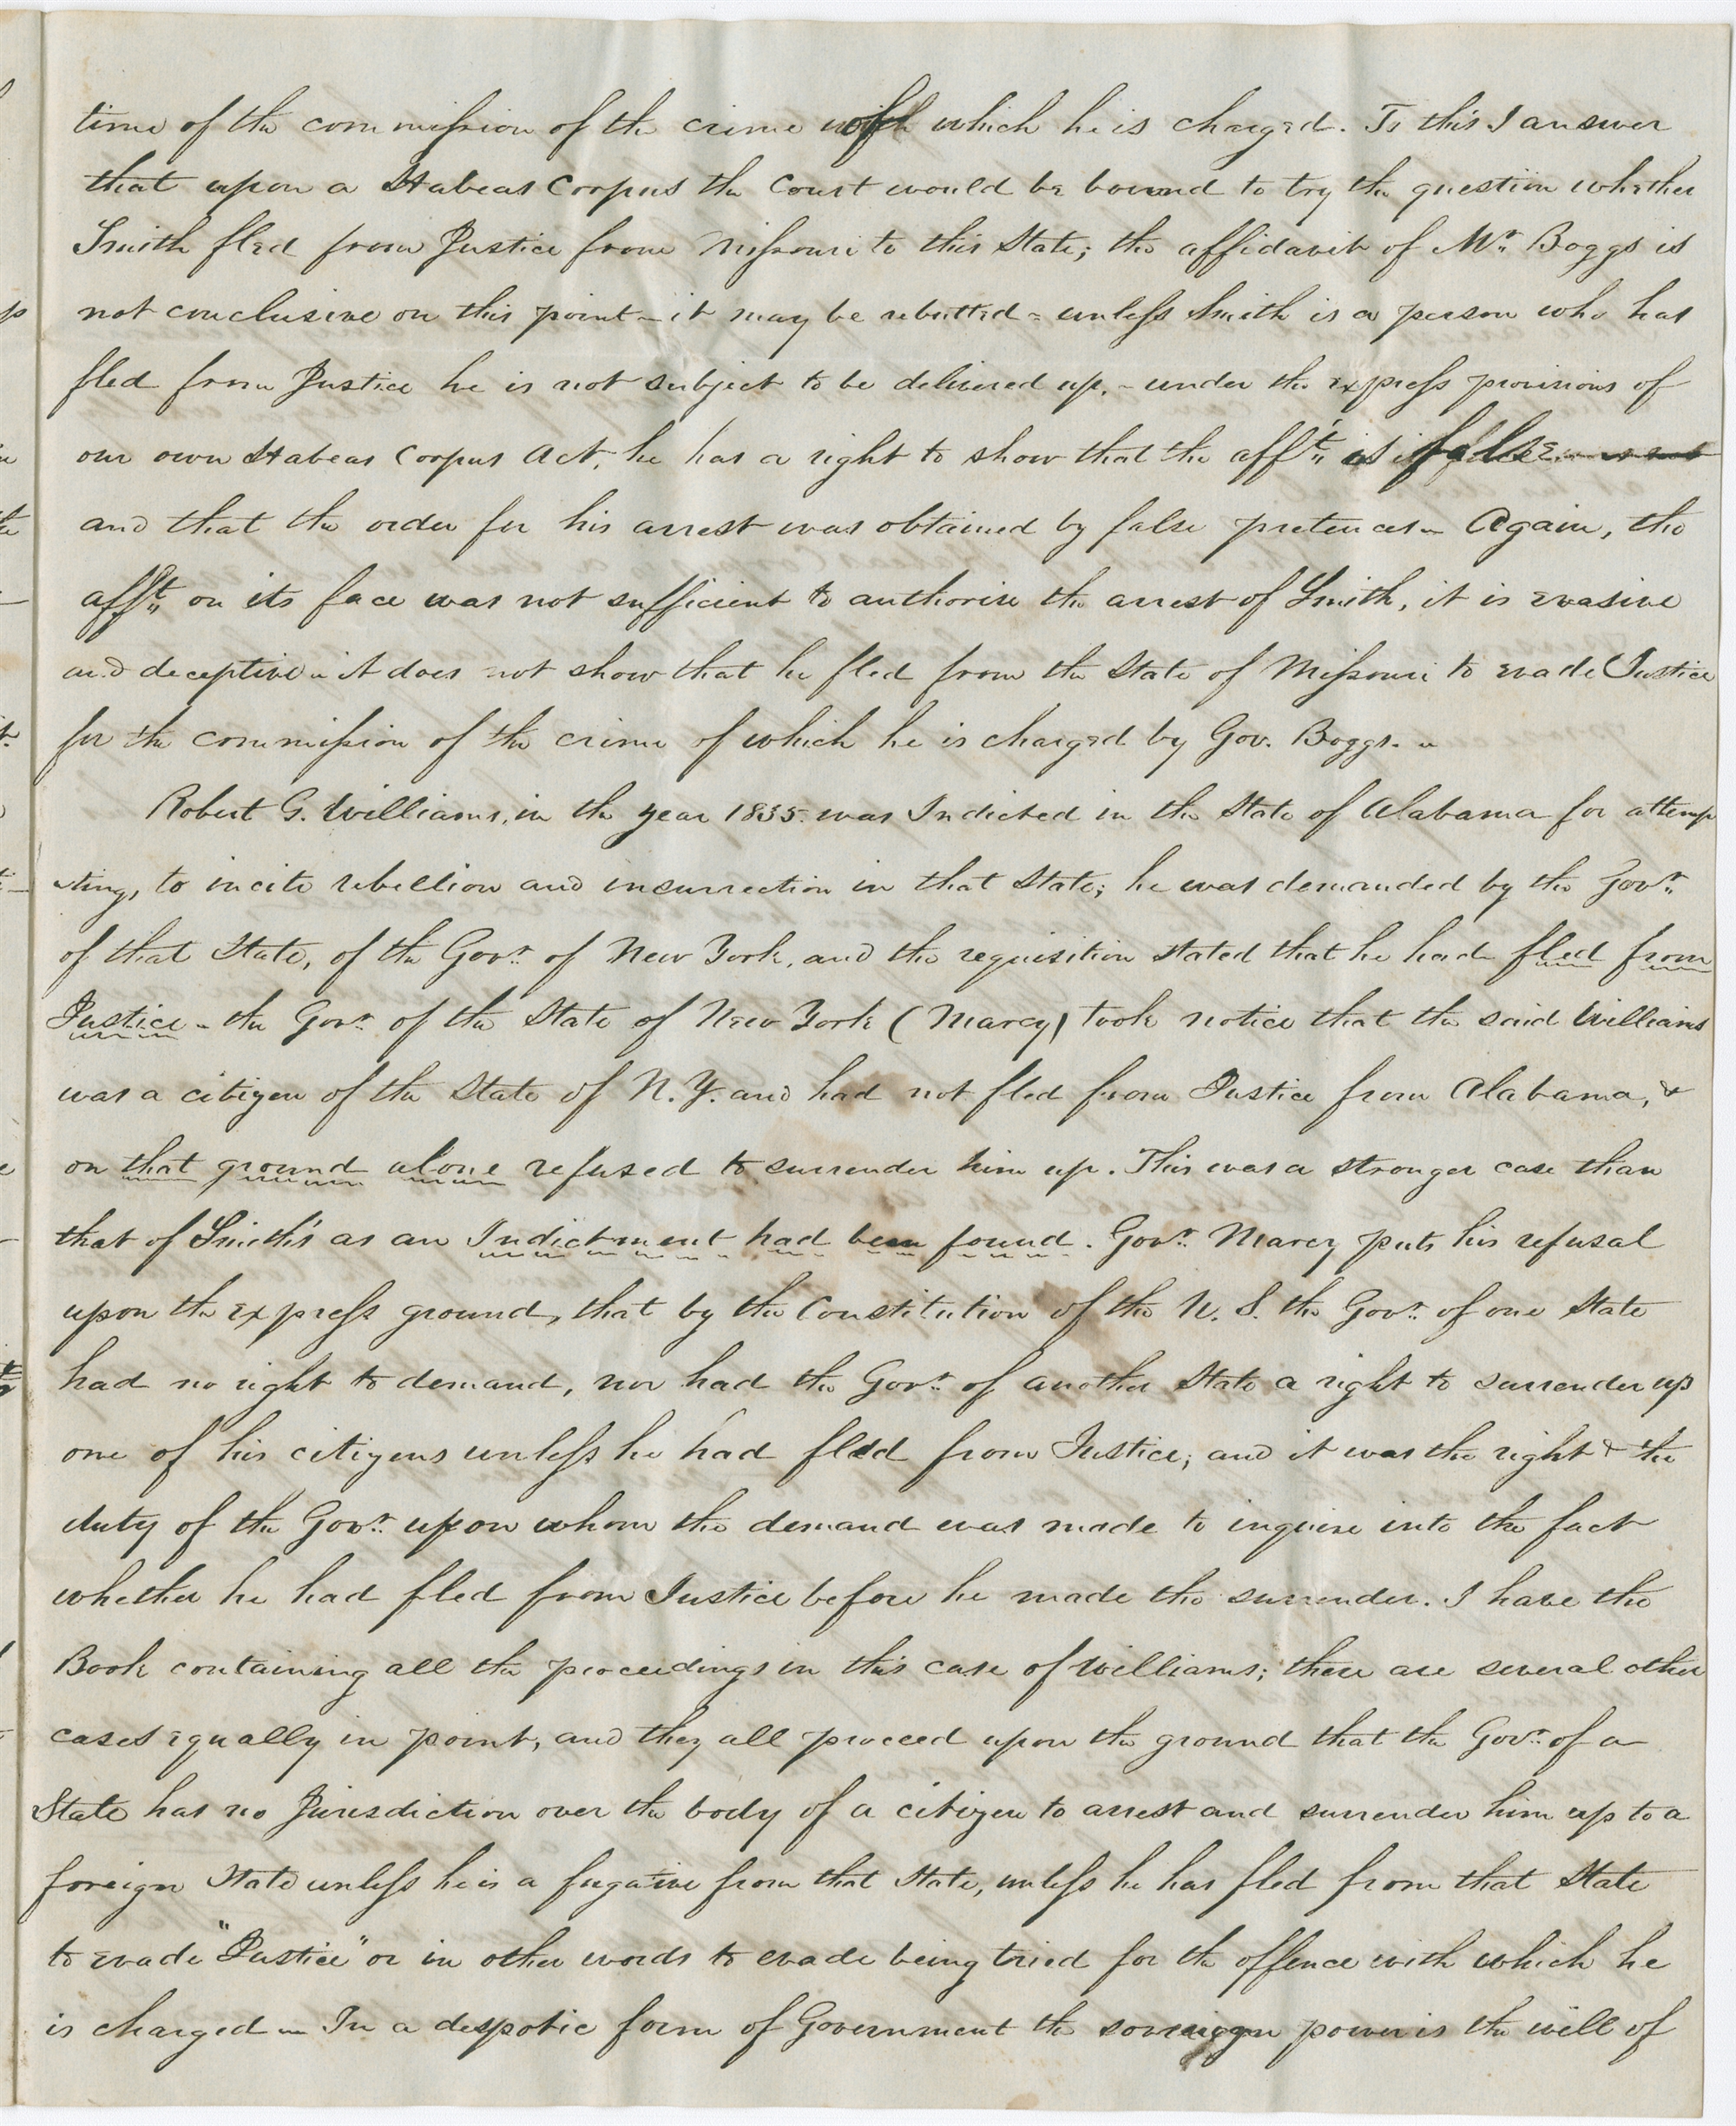 time of the commission of the crime of which he is charged. To this I answer
that upon a Habeas Corpus the Court would be bound to try the question whether
Smith fled from Justice from Missouri to this State; the affidavit of Mr. Boggs is
not conclusive on this point – it may be rebutted – unless Smith is a person who has
fled from Justice he is not subject to be delivered up, – under the express provisions of
our own Habeas Corpus Act, he has a right to show that the afft. is false
and that the order for his arrest was obtained by false pretences – Again, the
afft. on its face was not sufficient to authorise the arrest of Smith, it is evasive
and deceptive – it does not show that he fled from the State of Missouri to evade Justice
for the commission of the crime of which he is charged by Gov. Boggs. –
Robert G. Williams, in the year 1835. was Indicted in the State of Alabama for attemp
-ting, to incite rebellion and insurrection in that State; he was demanded by the Govr.
of that State, of the Govr. of New York, and the requisition stated that he had fled from
Justice – the Govr. of the State of New York (Marcy) took notice that the said Williams
was a citizen of the State of N. Y. and had not fled from Justice from Alabama, &
on that ground alone refused to surrender him up. This was a stronger case than
that of Smith's as an Indictment had been found. Govr. Marcy puts his refusal
upon the express ground, that by the Constitution of the U. S. the Govr. of one State
had no right to demand, nor had the Govr. of another State a right to surrender up
one of his citizens unless he had fled from Justice; and it was the right & the
duty of the Govr. upon whom the demand was made to inquire into the fact
whether he had fled from Justice before he made the surrender. I have the
Book containing all the proceedings in this case of Williams; there are several other
cases equally in point, and they all proceed upon the ground that the Govr. of a
State has no Jurisdiction over the body of a citizen to arrest and surrender him up to a
foreign State unless he is a fugative from that State, unless he has fled from that State
to evade "Justice" or in other words to evade being tried for the offence with which he
is charged – In a despotic form of Government the sovreign power is the will of